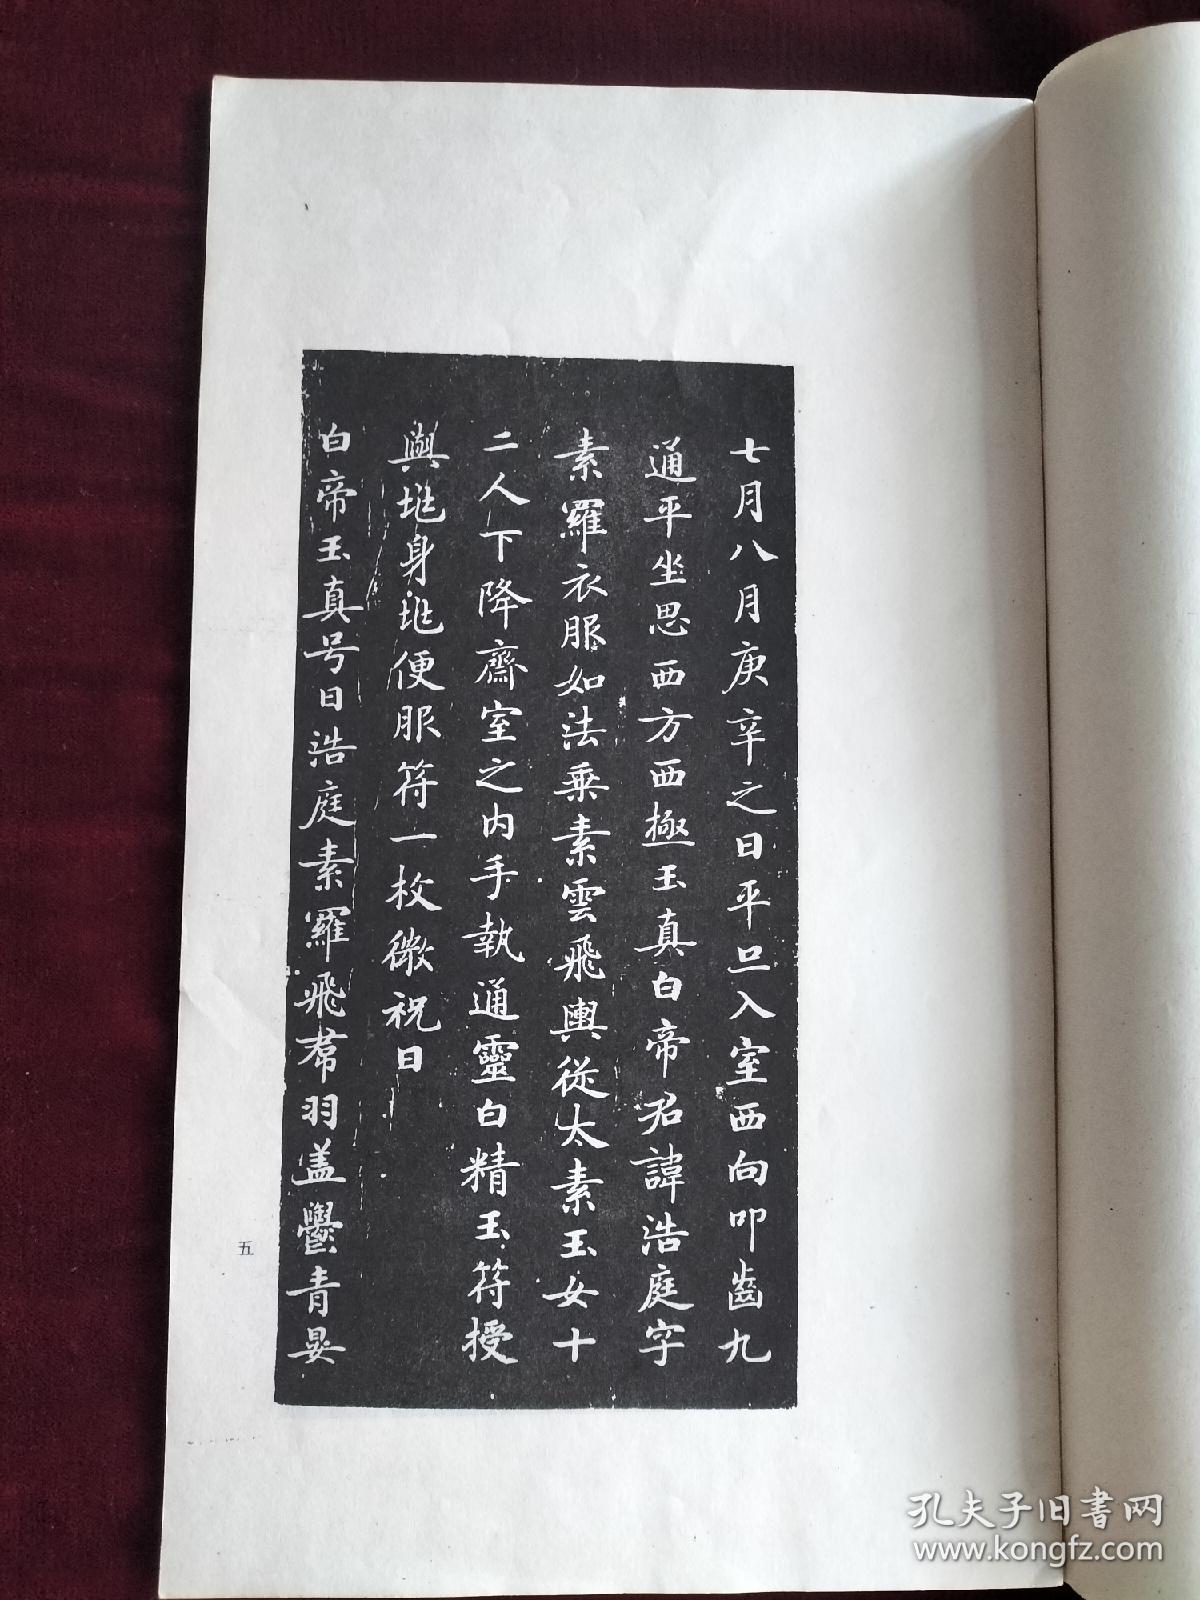 七月八月庚辛之日平旦入室西向叩齒九
通平坐思西方西極玉真白帝君諱浩庭字
素羅衣服如法乗素雲飛輿從太素玉女十
二人下降齋室之内手執通靈白精玉符授
與兆身兆便服符一枚微祝曰
白帝玉真号曰浩庭素羅飛帬羽盖鬱青晏
五
孔夫子旧书网
www.kongfz.com